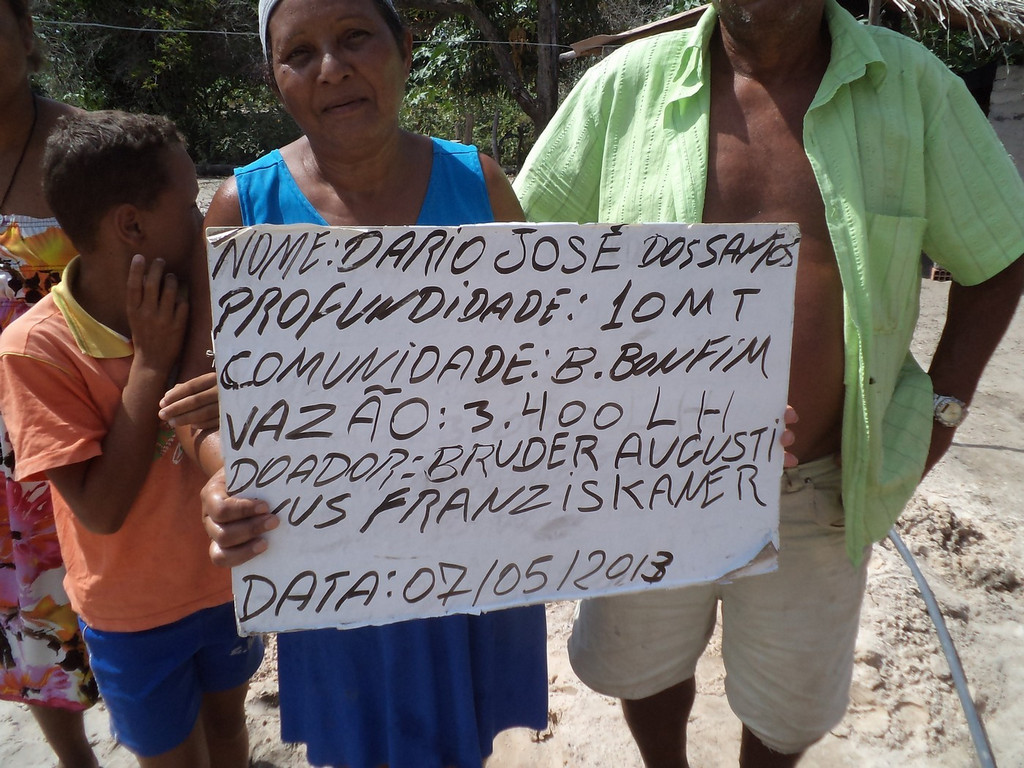 NOME: DARIO JOSÉ DOS SANTOS
PROFUNDIDADE: 10 MT
COMUNIDADE: B. BONFIM
VAZÃO: 3.400 LH
DOADOR: BRUDER AUGUSTI
NUS FRANZISKANER
DATA: 07/05/2013